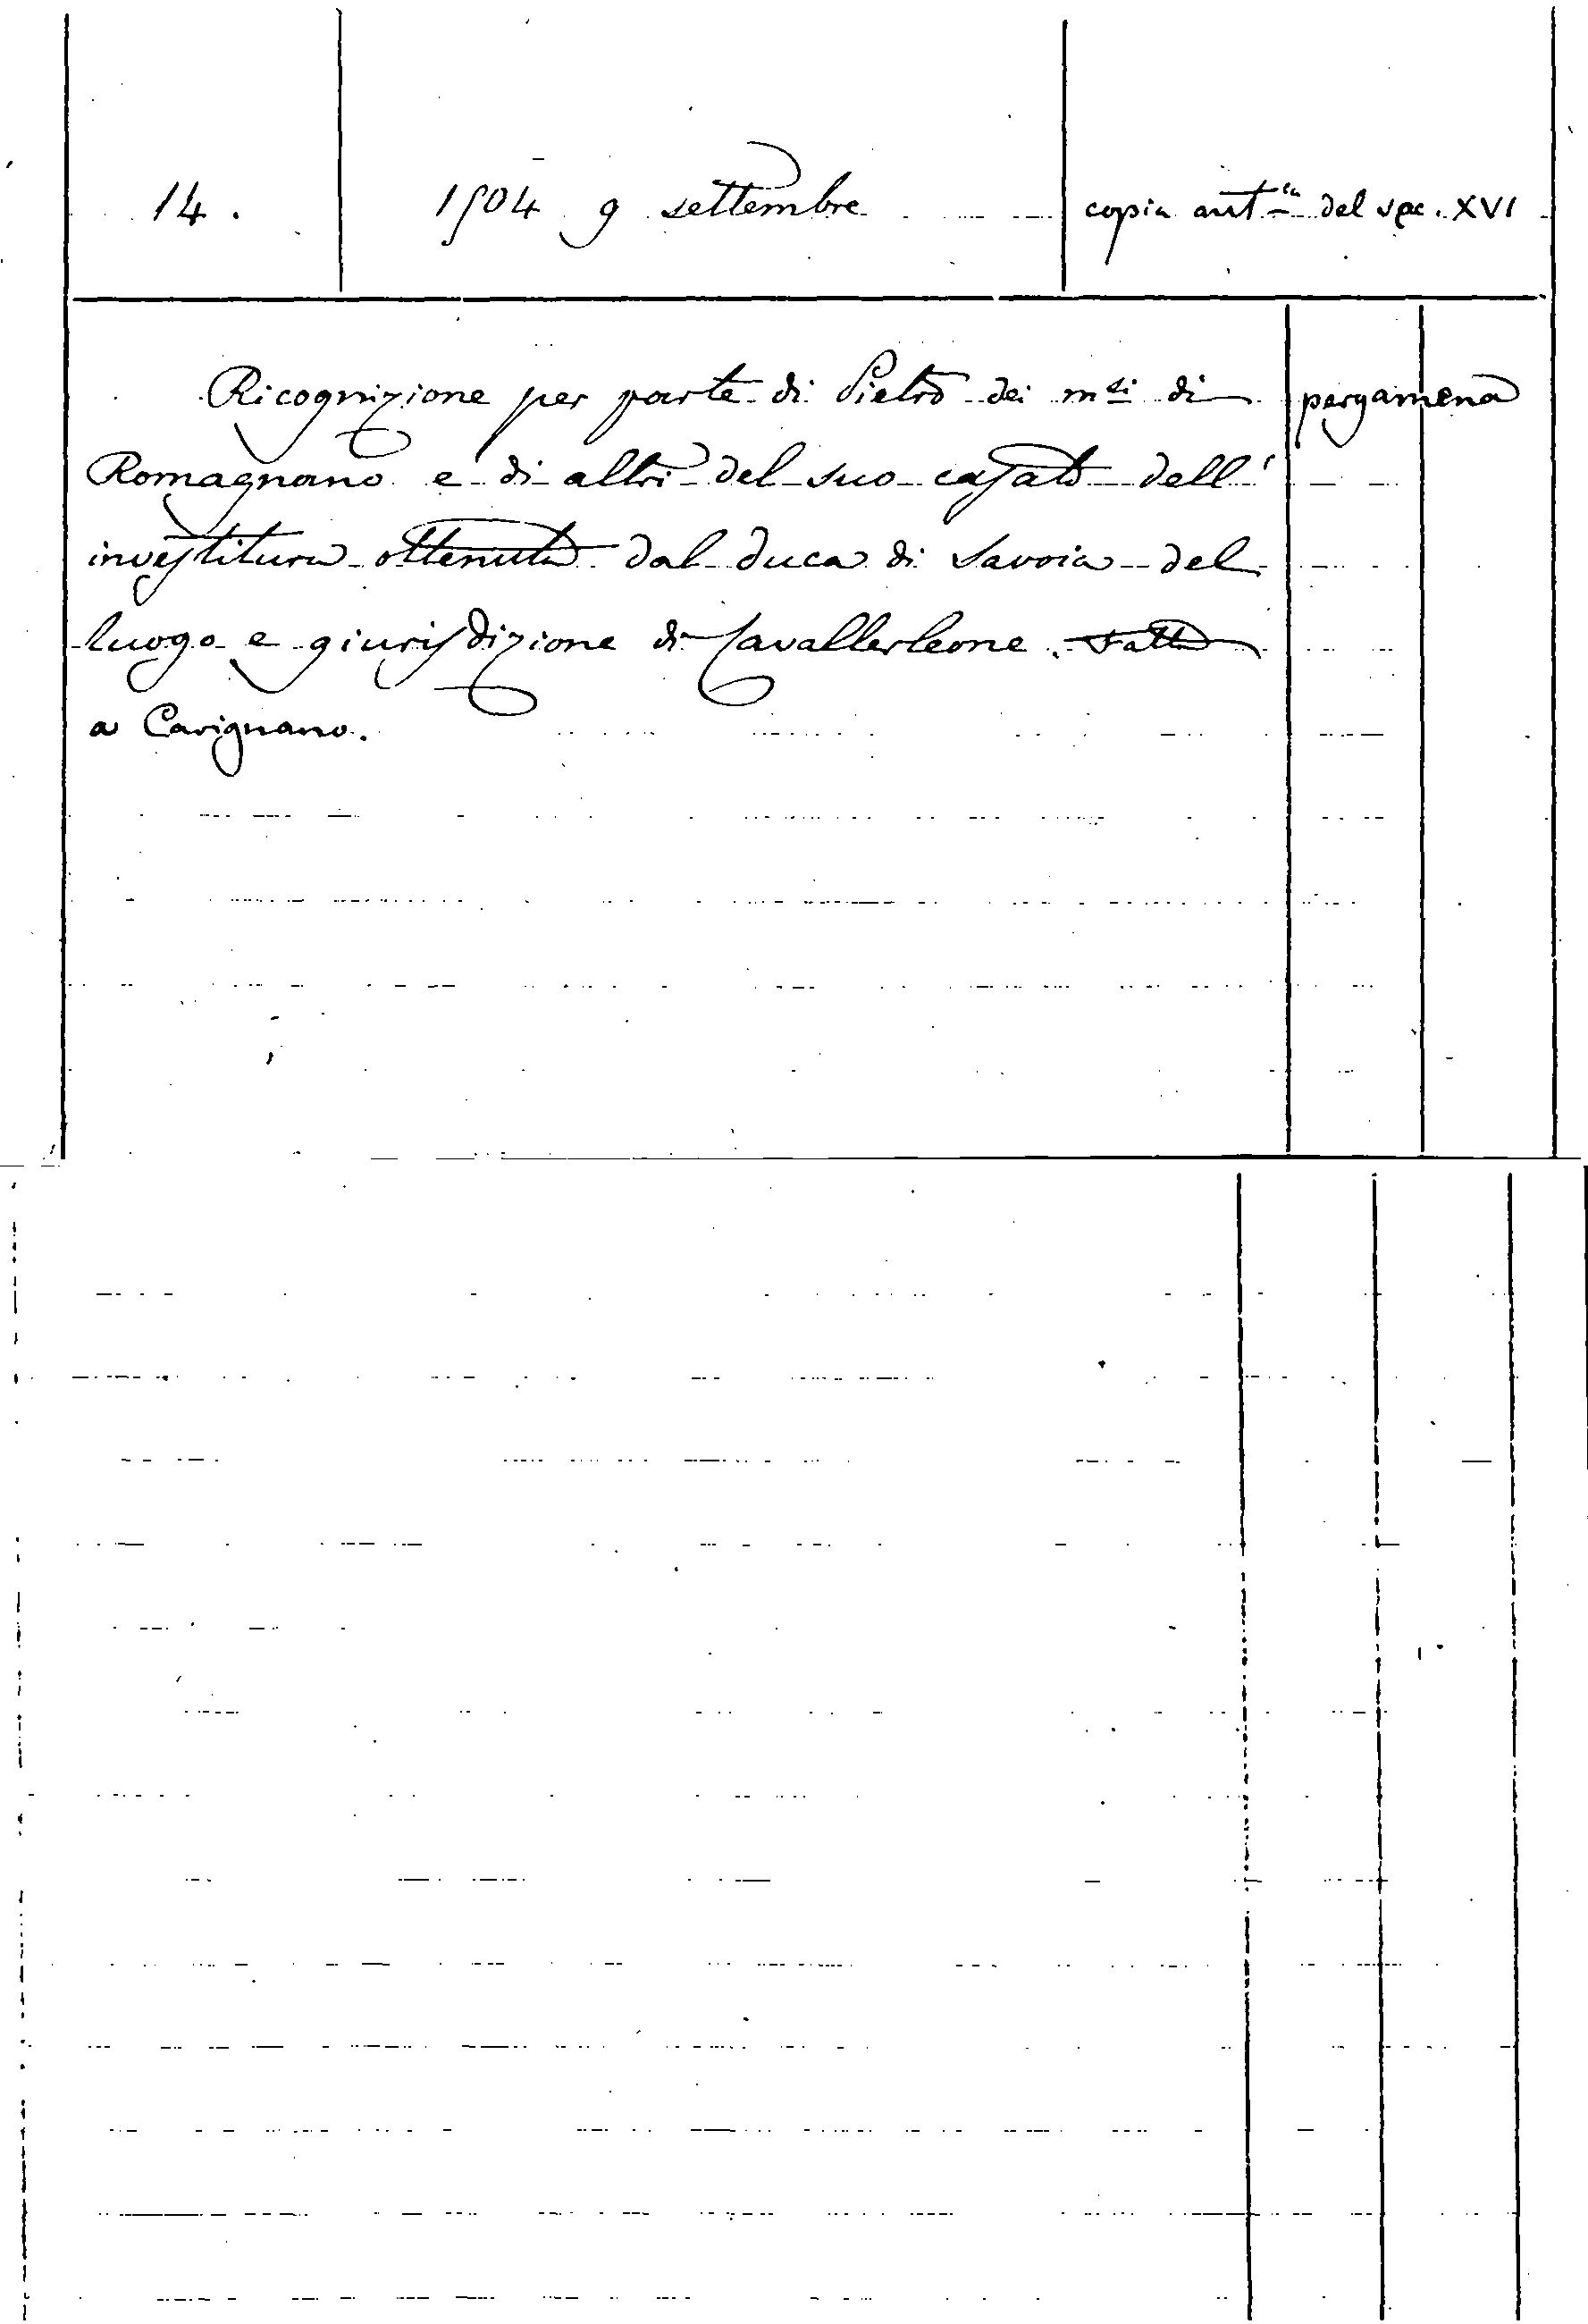 14. 1504 9 settembre copia aut.ca del sec. XVI
Ricognizione per parte di Pietro dei m.si di pergamena
Romagnano e di altri del suo casato dell'
investitura ottenuta dal duca di Savoia del
luogo e giurisdizione di Cavallerleone. Fatta
a Carignano.